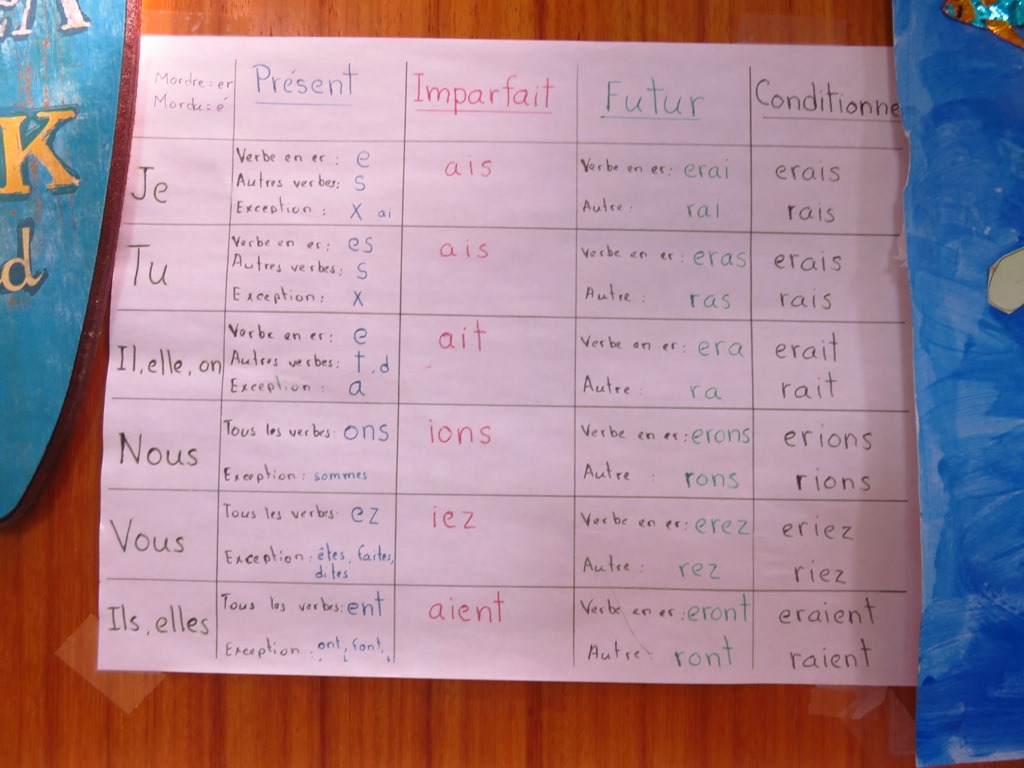 K
d
Mordre = er
Mordu = é
Présent
Imparfait
Futur
Conditionne
Je
Verbe en er : e
Autres verbes: s
Exception : x ai
ais
Verbe en er: erai
Autre : rai
erais
rais
Tu
Verbe en er: es
Autres verbes: s
Exception : x
ais
Verbe en er: eras
Autre : ras
erais
rais
Il, elle, on
Verbe en er: e
Autres verbes: t, d
Exception : a
ait
Verbe en er: era
Autre : ra
erait
rait
Nous
Tous les verbes: ons
Exception : sommes
ions
Verbe en er: erons
Autre : rons
erions
rions
Vous
Tous les verbes: ez
Exception : êtes, faites,
dites
iez
Verbe en er: erez
Autre : rez
eriez
riez
Ils, elles
Tous les verbes: ent
Exception : ont, font,
aient
Verbe en er: eront
Autre : ront
eraient
raient